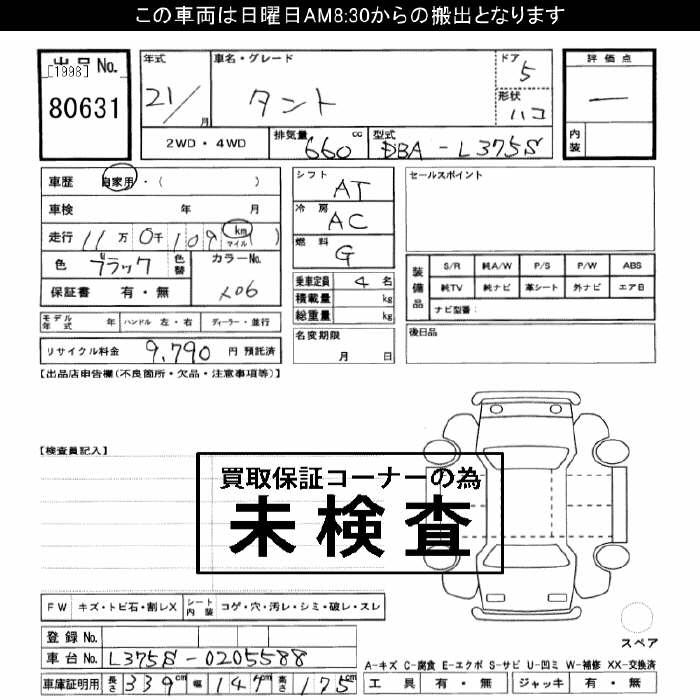 この車両は日曜日AM8:30からの搬出となります
出品No.
[1998]
80631
年式
21/
月
車名・グレード
タント
ドア
5
形状
ハコ
評価点
―
内装
2WD・4WD
排気量
660
cc
型式
DBA-L375S
車歴 自家用・( )
車検 年 月
走行 11万0千109 km マイル ( )
色 ブラック 色替
カラーNo.
X06
保証書 有・無
モデル年式 年 ハンドル 左・右 ディーラー・並行
リサイクル料金 9,790 円 預託済
シフト AT
冷房 AC
燃料 G
乗車定員 4 名
積載量 kg
総重量 kg
名変期限
月 日
セールスポイント
装備品
S/R 純A/W P/S P/W ABS
純TV 純ナビ 革シート 外ナビ エアB
ナビ型番:
後日品
【出品店申告欄(不良箇所・欠品・注意事項等)】
【検査員記入】
買取保証コーナーの為
未検査
FW キズ・トビ石・割レX シート内装 コゲ・穴・汚レ・シミ・破レ・スレ
登録No.
車台No. L375S-0205588
車庫証明用 長さ 339cm 幅 147cm 高さ 175cm
スペア
A-キズ C-腐食 E-エクボ S-サビ U-凹ミ W-補修 XX-交換済
工具 有・無 ジャッキ 有・無